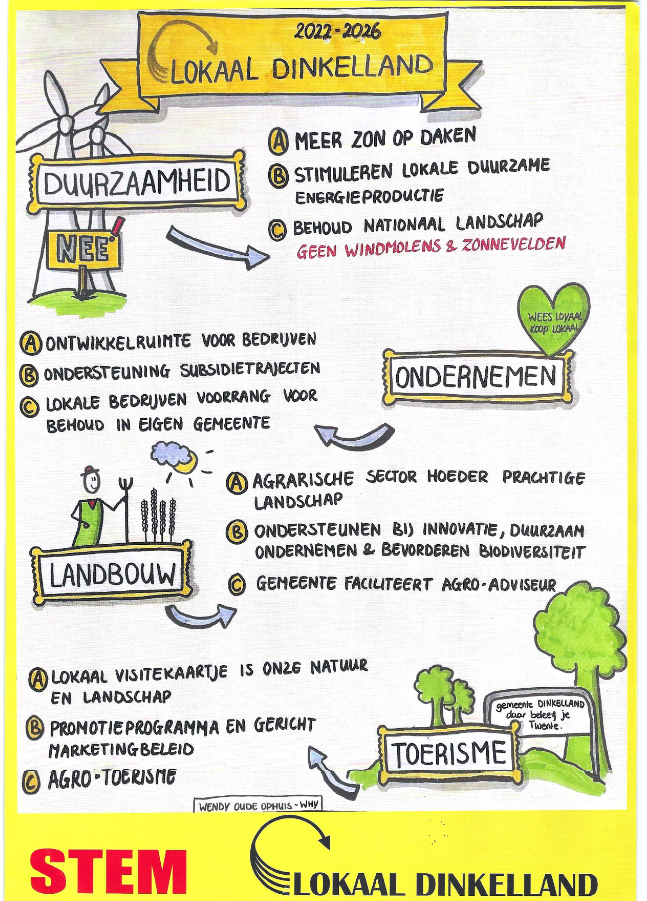 2022-2026
LOKAAL DINKELLAND
DUURZAAMHEID
NEE!
A MEER ZON OP DAKEN
B STIMULEREN LOKALE DUURZAME
ENERGIEPRODUCTIE
C BEHOUD NATIONAAL LANDSCHAP
GEEN WINDMOLENS & ZONNEVELDEN
WEES LOYAAL
KOOP LOKAAL
ONDERNEMEN
A ONTWIKKELRUIMTE VOOR BEDRIJVEN
B ONDERSTEUNING SUBSIDIETRAJECTEN
C LOKALE BEDRIJVEN VOORRANG VOOR
BEHOUD IN EIGEN GEMEENTE
LANDBOUW
A AGRARISCHE SECTOR HOEDER PRACHTIGE
LANDSCHAP
B ONDERSTEUNEN BIJ INNOVATIE, DUURZAAM
ONDERNEMEN & BEVORDEREN BIODIVERSITEIT
C GEMEENTE FACILITEERT AGRO-ADVISEUR
A LOKAAL VISITEKAARTJE IS ONZE NATUUR
EN LANDSCHAP
B PROMOTIEPROGRAMMA EN GERICHT
MARKETINGBELEID
C AGRO-TOERISME
gemeente DINKELLAND
daar beleef je
Twente.
TOERISME
WENDY OUDE OPHUIS-WHY
STEM
LOKAAL DINKELLAND